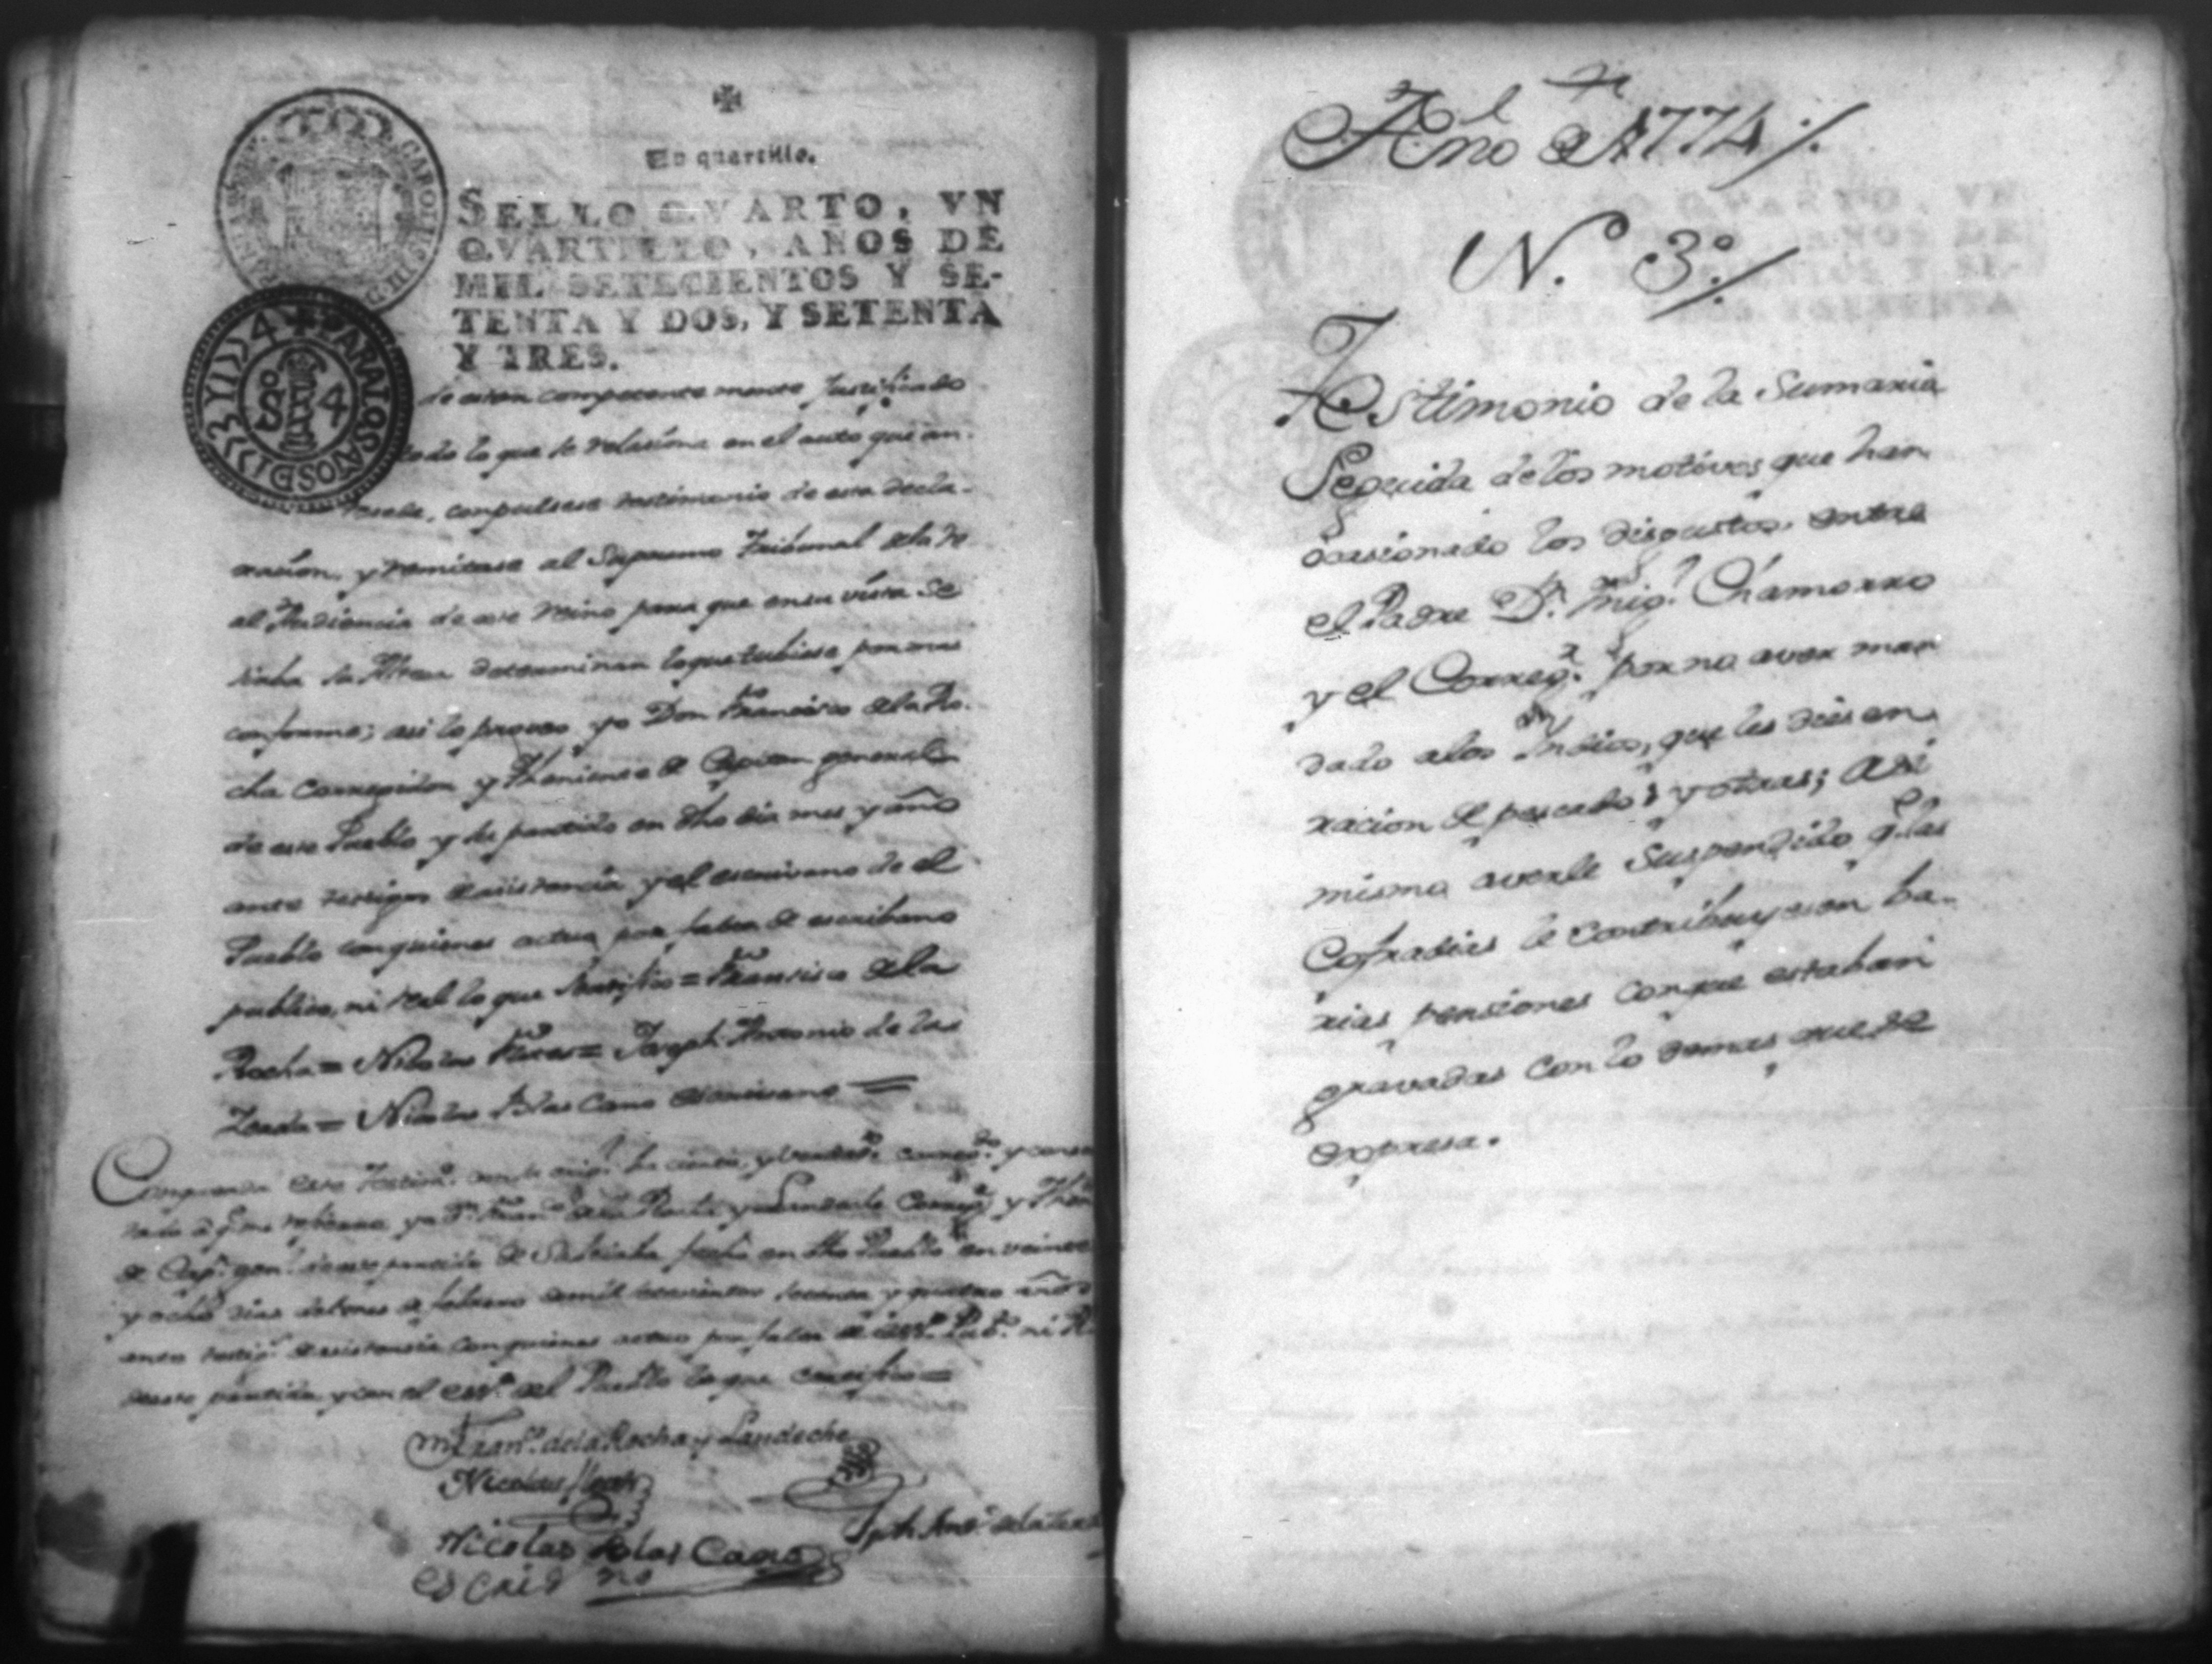 Un quartillo.
SELLO QVARTO, VN
QVARTILLO, AÑOS DE
MIL SETECIENTOS Y SE-
TENTA Y DOS, Y SETENTA
Y TRES.
CAROLUS III D
PARA LOS AÑOS D 1774
So 4
de estar competentemente justificado
todo lo que se relasiona en el auto que an-
tesede, conpulsese testimonio de esta decla-
rasion, y remitase al Supremo Tribunal de la Re
al Audiencia de este Reino para que en su vista Se
sirba su Alteza determinar lo que tubiese por mas
conforme; asi lo proveo yo Don Francisco de la Ro-
cha Corregidor y Theniente de Capitan general
de este Pueblo y su partido en dho dia mes y año
ante testigos de asistencia y el escrivano de el
Pueblo con quienes actuo por falta de escribano
publico, ni real lo que sertifico = Francisco de la
Rocha = Nicolas = Joseph Antonio de las
= Nicolas Blas Cano escrivano =
Concuerda este Testimo. con su orig.l ba cierto, y verdad.o correg.do y conser
tado a q.e me refiero yo Dn. Fran.co de la Rocha y Landeche Correg.r y Then
de Cap.n gen.l de este partido de Subtiaba fecho en dho Pueblo en veinte
y ocho dias del mes de febrero de mil setecientos setenta y quatro años
ante testig.s de asistencia con quienes actuo por falta de esc.no Pub.co ni R
en este partido y con el esc.no del Pueblo lo que certifico =
Fran.co de la Rocha y Landeche
Nicolas
Nicolas Blas Cano
escrib no
Jph Ant.o de la
Año de 1774
N.o 3o
Testimonio de la Sumaria
Seguida de los motivos que han
ocasionado los disgustos entre
el Padre Dn. Mig.l Chamorro
y el Correg.r por no aver man
dado a los Indios, que les diesen
racion de pescado y otras; asi
mismo averle Suspendido q.e las
Cofradias le contribuyesen ba-
rias pensiones con que estaban
gravadas con lo demas que se
expresa.